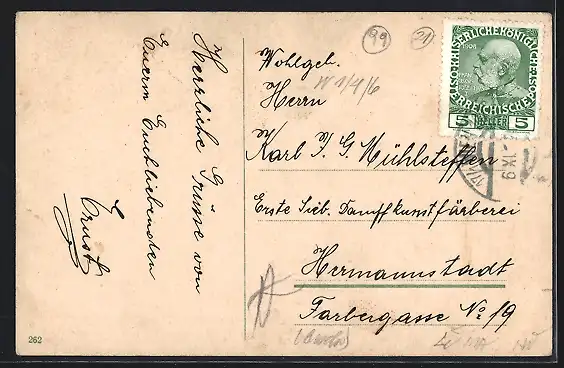 Herzliche Grüsse von
Euerm Euchliebenden
Ernst
99
21
Wohlgeb.
W 1/4/6
Herrn
Karl J. G. Mühlsteffen
Erste Sieb. Dampfkunstfärberei
Hermannstadt
Farbergasse No 19
KAISERLICHE KÖNIGLICHE
ÖSTERREICHISCHE
5 HELLER 5
IX 9
262